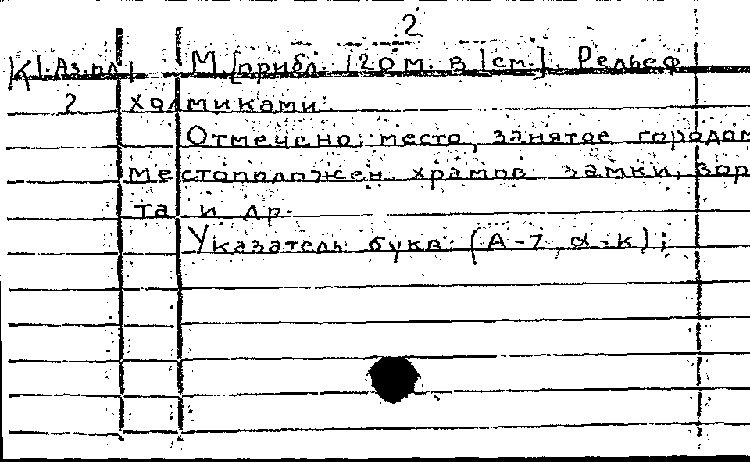 2
К1.Аз.пл. М. [прибл. 120 м. в 1 см.]. Рельеф
2 холмиками.
Отмечено: место, занятое городом
местоположен. храмов, замки, вор
та и др.
Указатель букв. (А-Z, α-к);